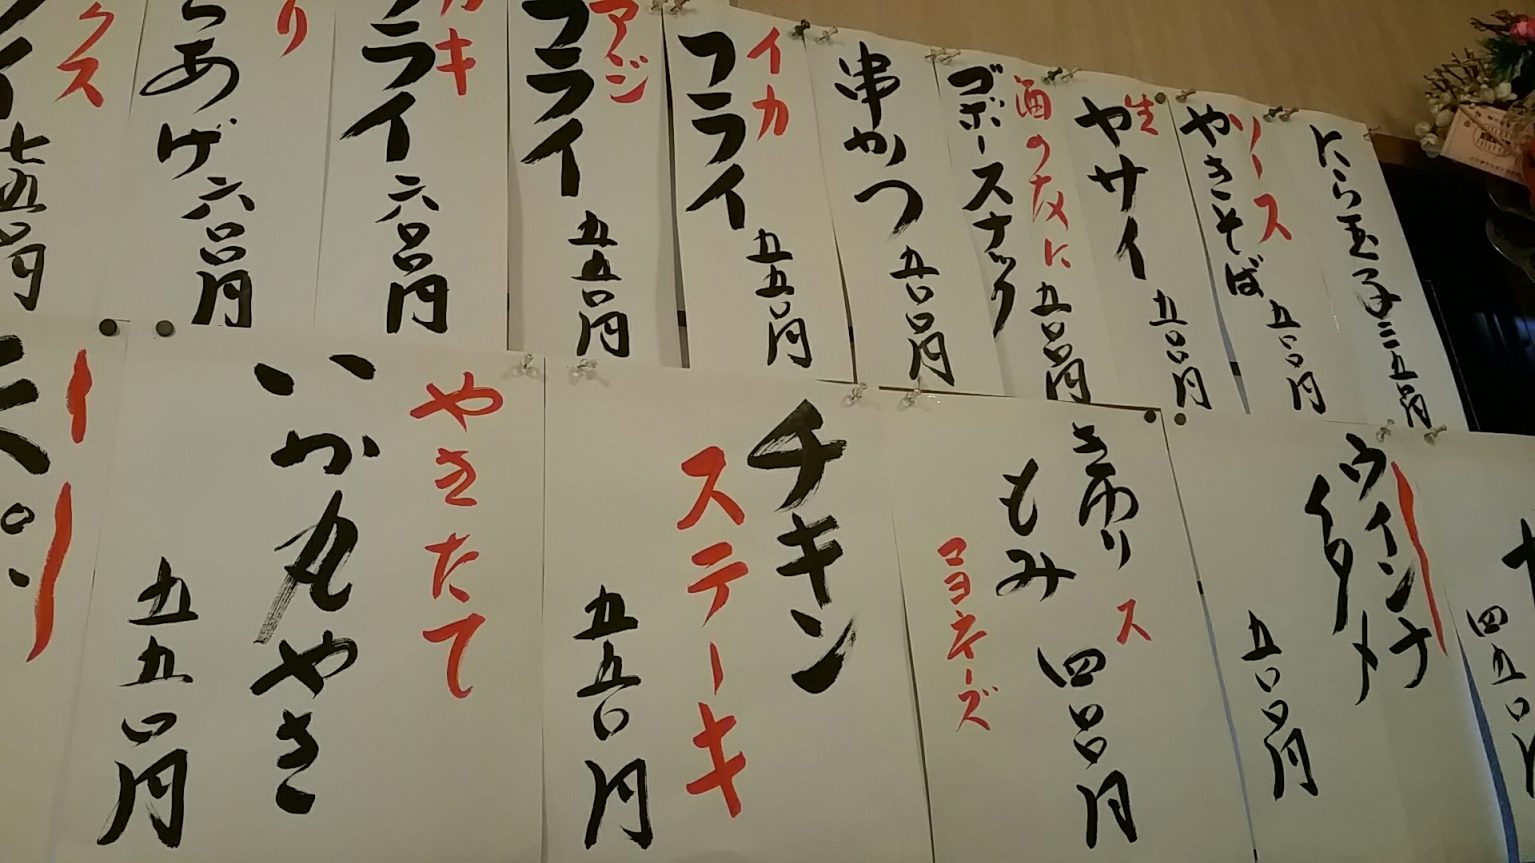 にら玉子三五〇円
ソース
やきそば
五〇〇円
生
ヤサイ
五〇〇円
酒の友に
ゴボースナック
五〇〇円
串かつ
五〇〇円
イカ
フライ
五五〇円
アジ
フライ
五五〇円
カキ
フライ
六〇〇円
り
らあげ
六〇〇円
クス
イ
七五〇円
四五〇円
ウインナー
イタメ
五〇〇円
きゅうり
もみ
ス
マヨネーズ
四〇〇円
チキン
ステーキ
五五〇円
やきたて
いか丸やき
五五〇円